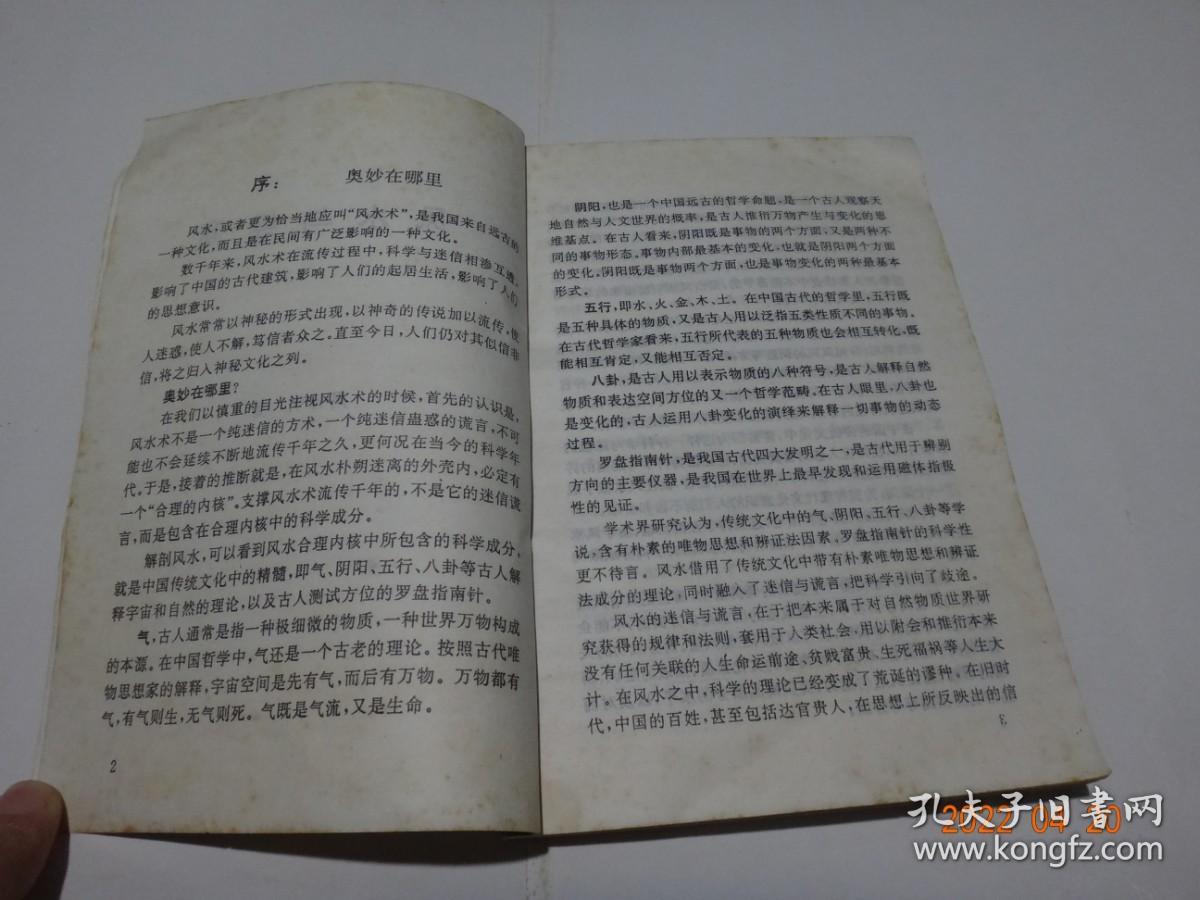 序： 奥妙在哪里
风水，或者更为恰当地应叫“风水术”，是我国来自远古的
一种文化，而且是在民间有广泛影响的一种文化。
数千年来，风水术在流传过程中，科学与迷信相渗互透，
影响了中国的古代建筑，影响了人们的起居生活，影响了人们
的思想意识。
风水常常以神秘的形式出现，以神奇的传说加以流传，使
人迷惑，使人不解，笃信者众之。直至今日，人们仍对其似信非
信，将之归入神秘文化之列。
奥妙在哪里？
在我们以慎重的目光注视风水术的时候，首先的认识是，
风水术不是一个纯迷信的方术，一个纯迷信蛊惑的谎言，不可
能也不会延续不断地流传千年之久，更何况在当今的科学年
代。于是，接着的推断就是，在风水朴朔迷离的外壳内，必定有
一个“合理的内核”。支撑风水术流传千年的，不是它的迷信谎
言，而是包含在合理内核中的科学成分。
解剖风水，可以看到风水合理内核中所包含的科学成分，
就是中国传统文化中的精髓，即气、阴阳、五行、八卦等古人解
释宇宙和自然的理论，以及古人测试方位的罗盘指南针。
气，古人通常是指一种极细微的物质，一种世界万物构成
的本源。在中国哲学中，气还是一个古老的理论。按照古代唯
物思想家的解释，宇宙空间是先有气，而后有万物。万物都有
气，有气则生，无气则死。气既是气流，又是生命。
2
阴阳，也是一个中国远古的哲学命题，是一个古人观察天
地自然与人文世界的概率，是古人惟衍万物产生与变化的思
维基点。在古人看来，阴阳既是事物的两个方面，又是两种不
同的事物形态。事物内部最基本的变化，也就是阴阳两个方面
的变化。阴阳既是事物两个方面，也是事物变化的两种最基本
形式。
五行，即水、火、金、木、土。在中国古代的哲学里，五行既
是五种具体的物质，又是古人用以泛指五类性质不同的事物。
在古代哲学家看来，五行所代表的五种物质也会相互转化，既
能相互肯定，又能相互否定。
八卦，是古人用以表示物质的八种符号，是古人解释自然
物质和表达空间方位的又一个哲学范畴。在古人眼里，八卦也
是变化的，古人运用八卦变化的演绎来解释一切事物的动态
过程。
罗盘指南针，是我国古代四大发明之一，是古代用于辨别
方向的主要仪器，是我国在世界上最早发现和运用磁体指极
性的见证。
学术界研究认为，传统文化中的气、阴阳、五行、八卦等学
说，含有朴素的唯物思想和辨证法因素。罗盘指南针的科学性
更不待言。风水借用了传统文化中带有朴素唯物思想和辨证
法成分的理论，同时融入了迷信与谎言，把科学引向了歧途。
风水的迷信与谎言，在于把本来属于对自然物质世界研
究获得的规律和法则，套用于人类社会，用以附会和推衍本来
没有任何关联的人生命运前途、贫贱富贵、生死福祸等人生大
计。在风水之中，科学的理论已经变成了荒诞的谬种。在旧时
代，中国的百姓，甚至包括达官贵人，在思想上所反映出的信
3
孔夫子旧书网
2022 04 20
www.kongfz.com